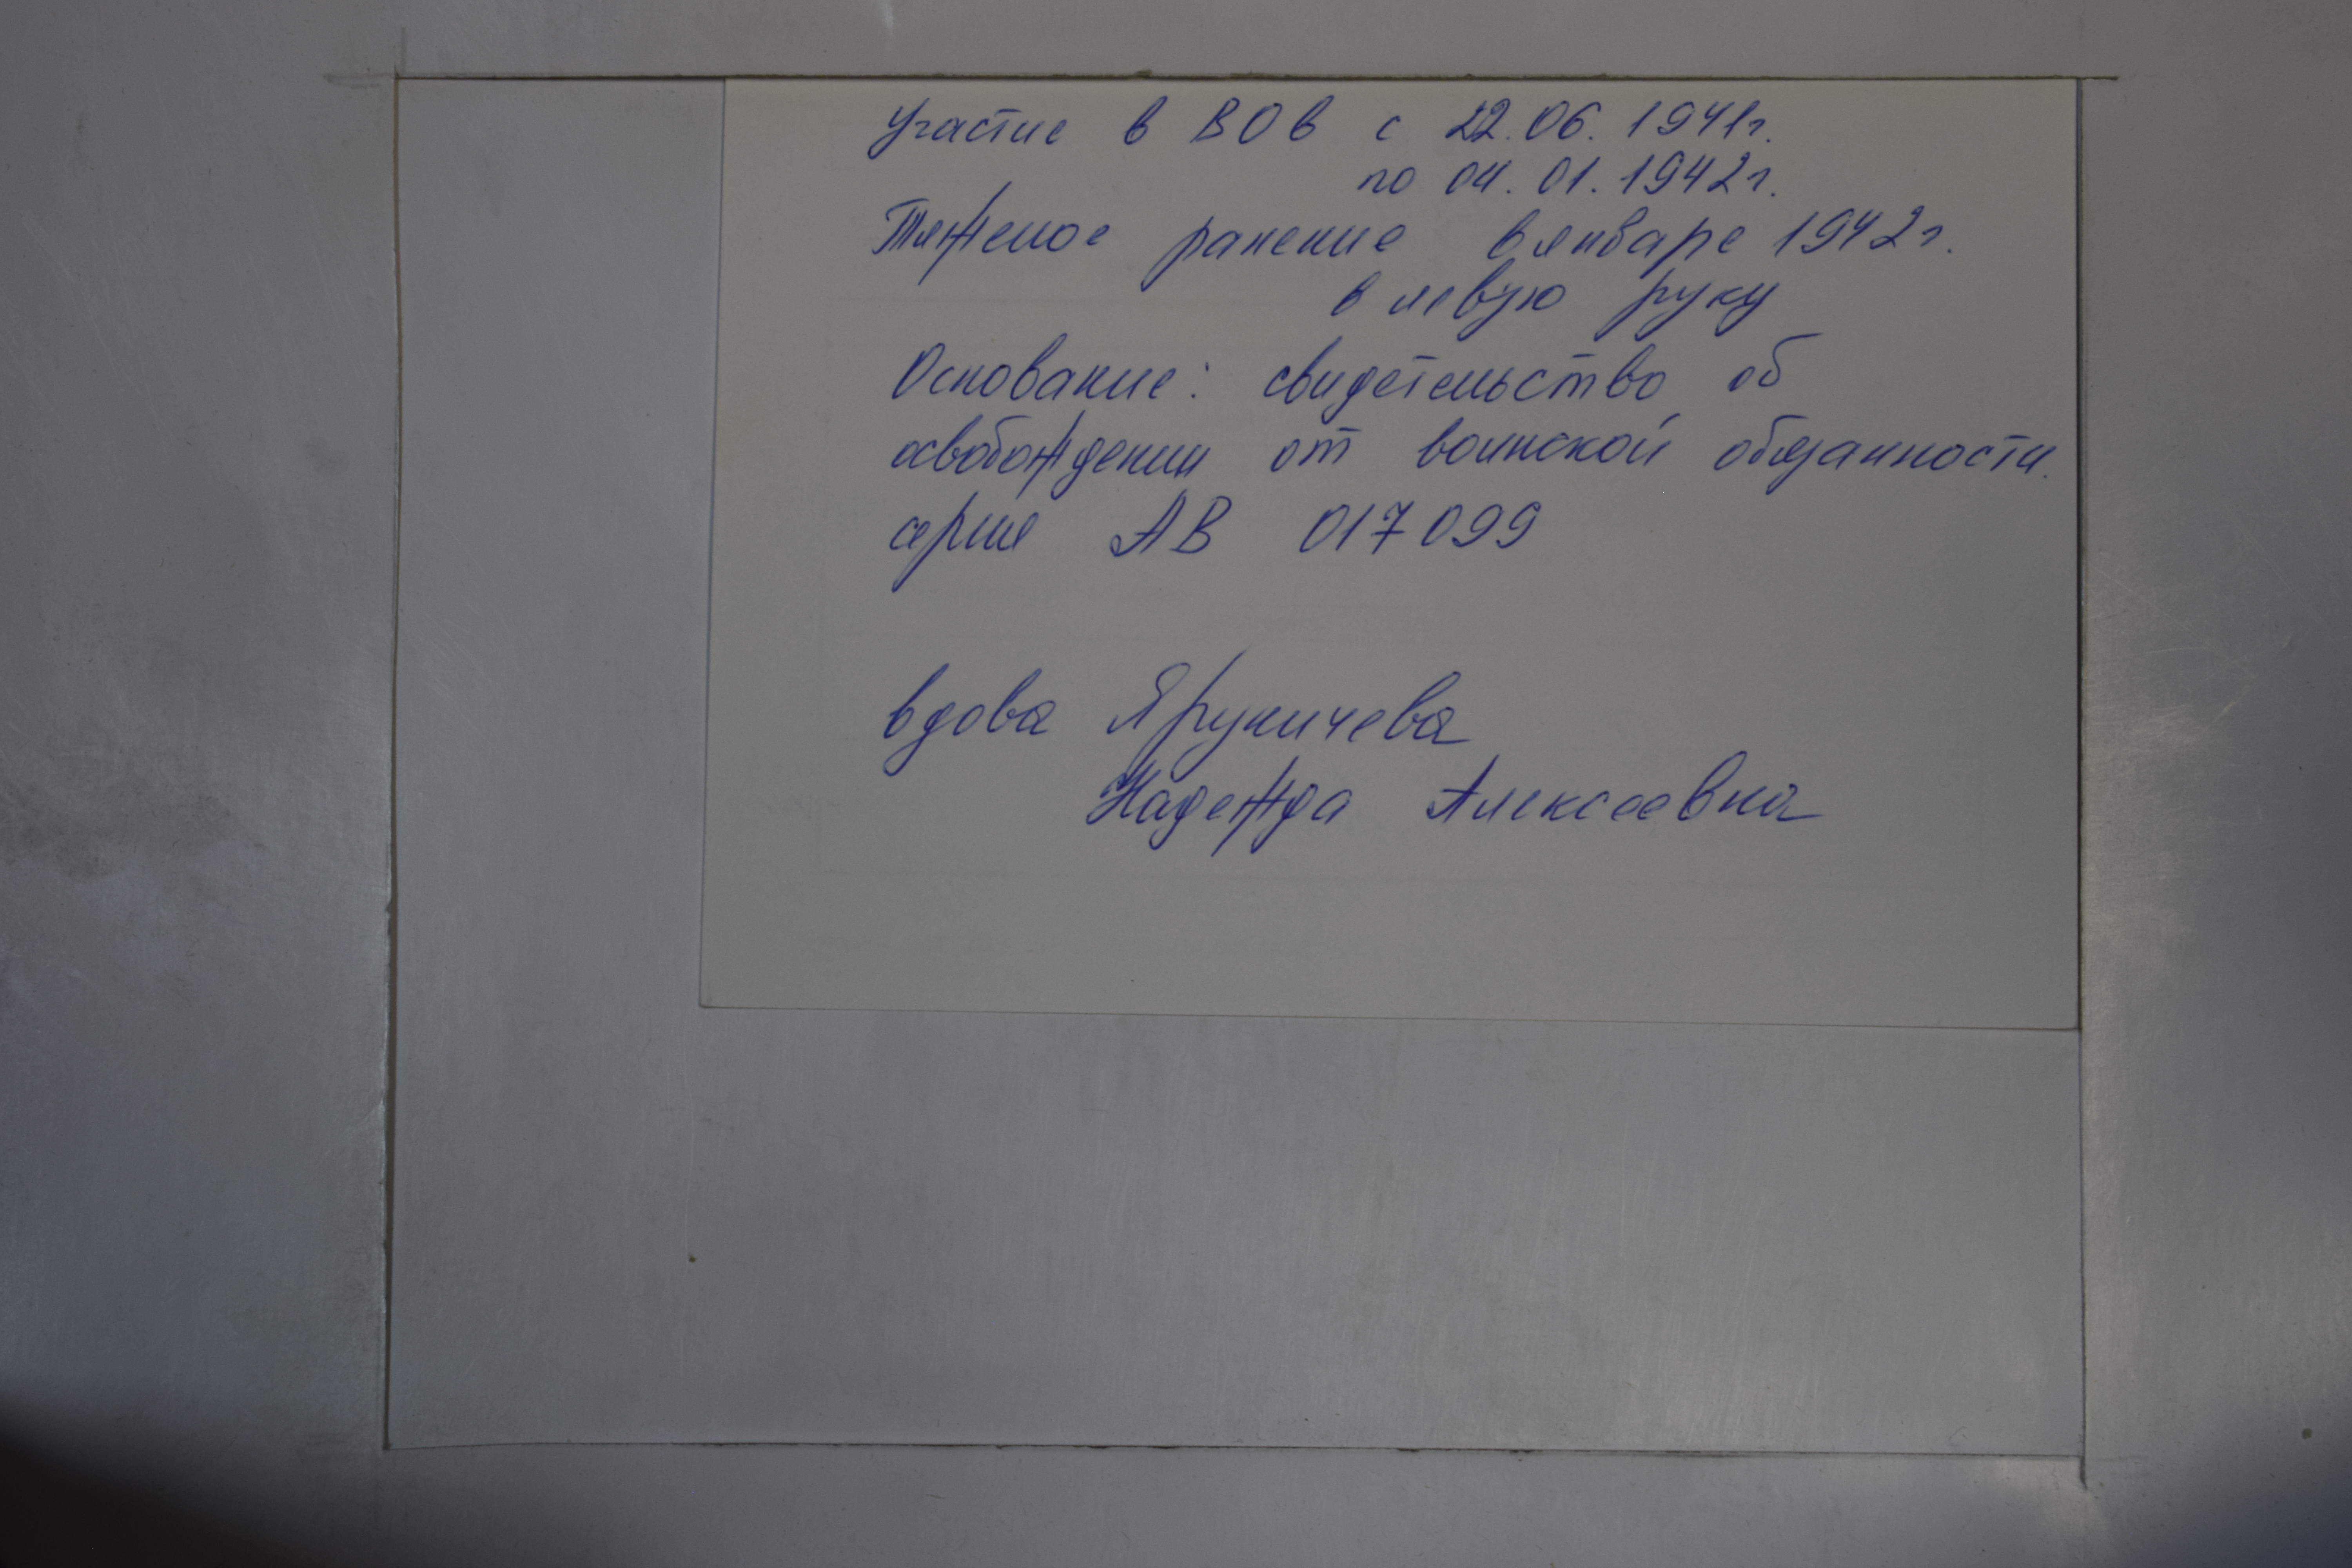 Участие в ВОв с 22.06.1941г.
по 04.01.1942г.
Тяжелое ранение в январе 1942г.
в левую руку
Основание: свидетельство об
освобождении от воинской обязанности.
серия АВ 017099
вдова Яруничева
Надежда Алексеевна